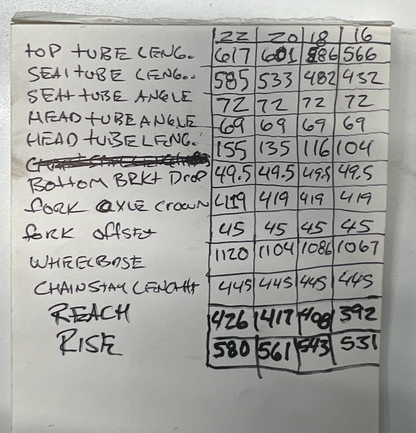 22 20 18 16
TOP TUBE LENG. 617 601 586 566
SEAT TUBE LENG.. 585 533 482 432
SEAT TUBE ANGLE 72 72 72 72
HEAD TUBE ANGLE 69 69 69 69
HEAD TUBE LENG. 155 135 116 104
BOTTOM BRKT DROP 49.5 49.5 49.5 49.5
FORK AXLE CROWN 419 419 419 419
FORK OFFSET 45 45 45 45
WHEELBASE 1120 1104 1086 1067
CHAINSTAY LENGHT 445 445 445 445
REACH 426 417 408 392
RISE 580 561 543 531